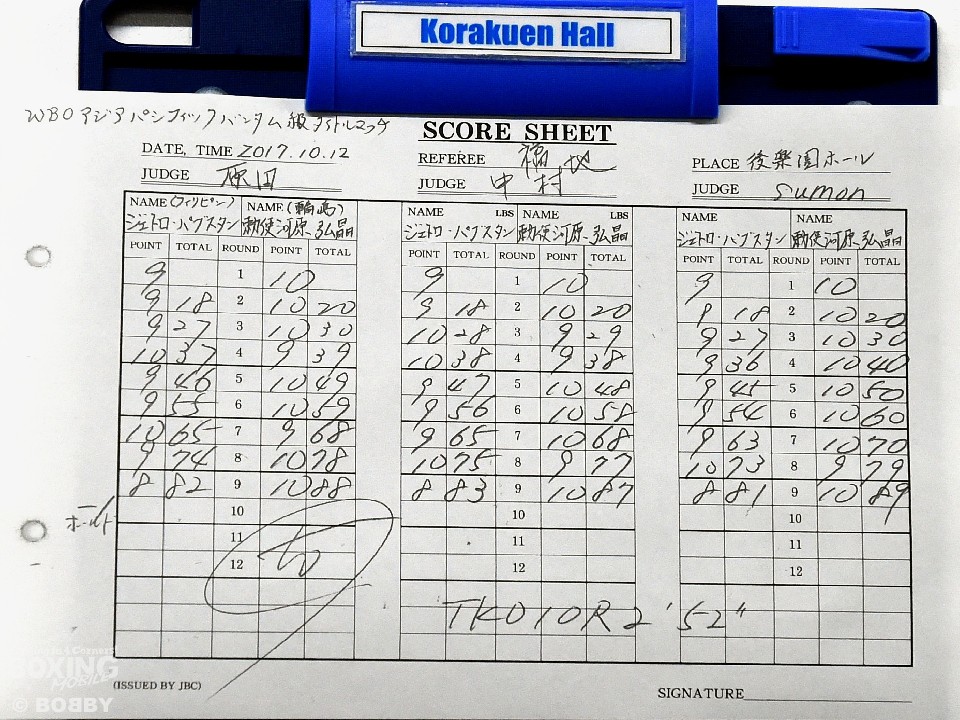 Korakuen Hall
WBOアジアパシフィックバンタム級タイトルマッチ
SCORE SHEET
DATE, TIME 2017.10.12 REFEREE 福地 PLACE 後楽園ホール
JUDGE 原田 JUDGE 中村 JUDGE sumon
NAME (フィリピン) NAME (輪島) NAME LBS NAME LBS NAME NAME
ジェトロ・パブスタン 勅使河原弘晶 ジェトロ・パブスタン 勅使河原弘晶 ジェトロ・パブスタン 勅使河原弘晶
POINT TOTAL ROUND POINT TOTAL POINT TOTAL ROUND POINT TOTAL POINT TOTAL ROUND POINT TOTAL
9 1 10 9 1 10 9 1 10
9 18 2 10 20 9 18 2 10 20 9 18 2 10 20
9 27 3 10 30 10 28 3 9 29 9 27 3 10 30
10 37 4 9 39 10 38 4 9 38 9 36 4 10 40
9 46 5 10 49 9 47 5 10 48 9 45 5 10 50
9 55 6 10 59 9 56 6 10 58 9 54 6 10 60
10 65 7 9 68 9 65 7 10 68 9 63 7 10 70
9 74 8 10 78 10 75 8 9 77 10 73 8 9 79
8 82 9 10 88 8 83 9 10 87 8 81 9 10 89
ホールド 10 10 10
11 11 11
12 12 12
TKO10R2'52"
(ISSUED BY JBC) SIGNATURE
BOXING
MOBILE
© BOBBY